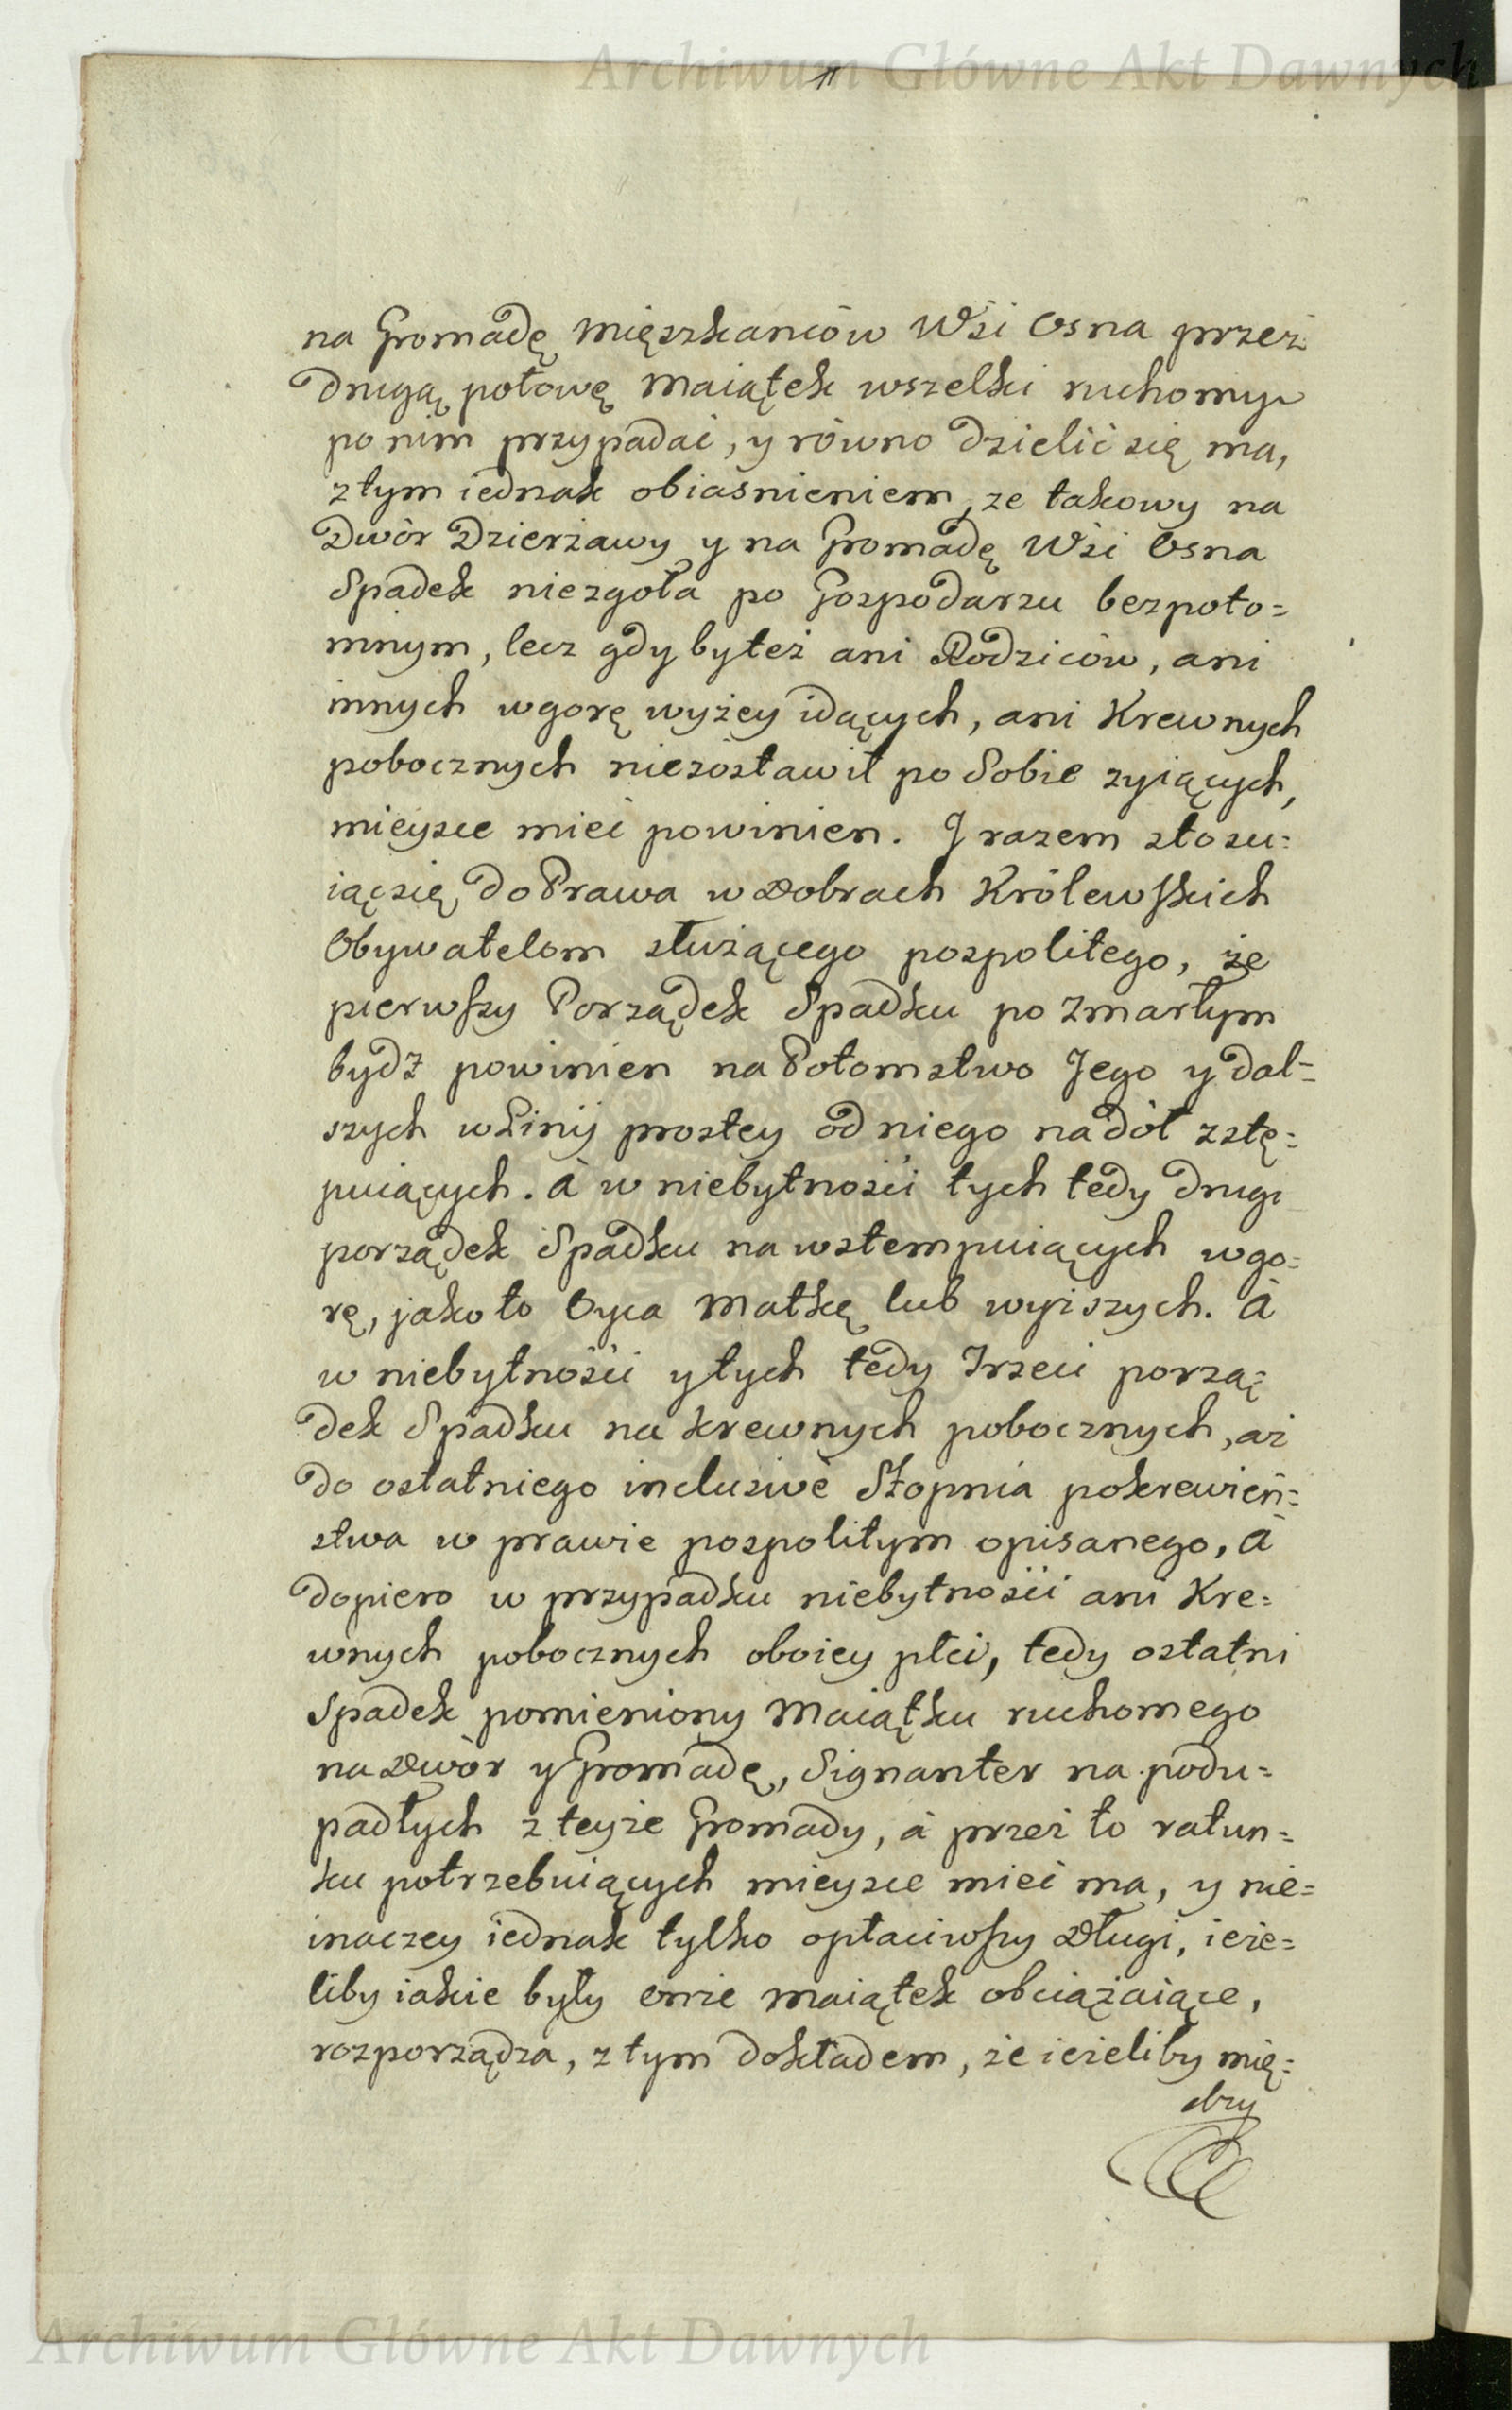 Archiwum Główne Akt Dawnych
na Gromadę Mięszkańców Wśi Osna przez
drugą połowę Maiątek wszelki ruchomy
po nim przypadać, y równo dzielić się ma,
z tym iednak obiasnieniem, ze takowy na
Dwór Dzierżawy y na Gromadę Wśi Osna
Spadek niezgoła po Gospodarzu bezpoto=
mnym, lecz gdyby też ani Rodziców, ani
innych wgorę wyżey idących, ani Krewnych
pobocznych niezostawił po Sobie zyiących,
mieysce mieć powinien. J razem stosu=
iąc się do Prawa w Dobrach Królewskich
Obywatelom służącego pospolitego, że
pierwszy Porządek Spadku po zmarłym
bydź powinien na Potomstwo Jego y dal=
szych w Linij prostey od niego na dół zstę=
puiących. à w niebytności tych tedy drugi
porządek Spadku na wstempuiących wgo=
rę, jako to Oyca Matkę lub wyiszych. à
w niebytności y tych tedy Trzeci porzą=
dek Spadku na krewnych pobocznych, aż
do ostatniego inclusivè Stopnia pokrewień=
stwa w prawie pospolitym opisanego, à
dopiero w przypadku niebytności ani Kre=
wnych pobocznych oboiey płci, tedy ostatni
Spadek pomieniony Maiątku ruchomego
na Dwór y Gromadę, Signanter na podu=
padłych z teyże Gromady, à przez to ratun=
ku potrzebuiących mieysce mieć ma, y nie=
inaczey iednak tylko opłaciwszy Długi, ieże=
liby iakie były onże maiątek obciążaiące,
rozporządza, z tym dokładem, że ieżeliby mię=
dzy
Archiwum Główne Akt Dawnych